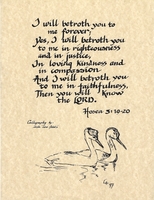 I will betroth you to
me forever;
Yes, I will betroth you
to me in righteousness
and in justice,
In loving kindness and
in compassion.
And I will betroth you
to me in faithfulness,
Then you will Know
the LORD.
Hosea 2:19-20
Calligraphy by